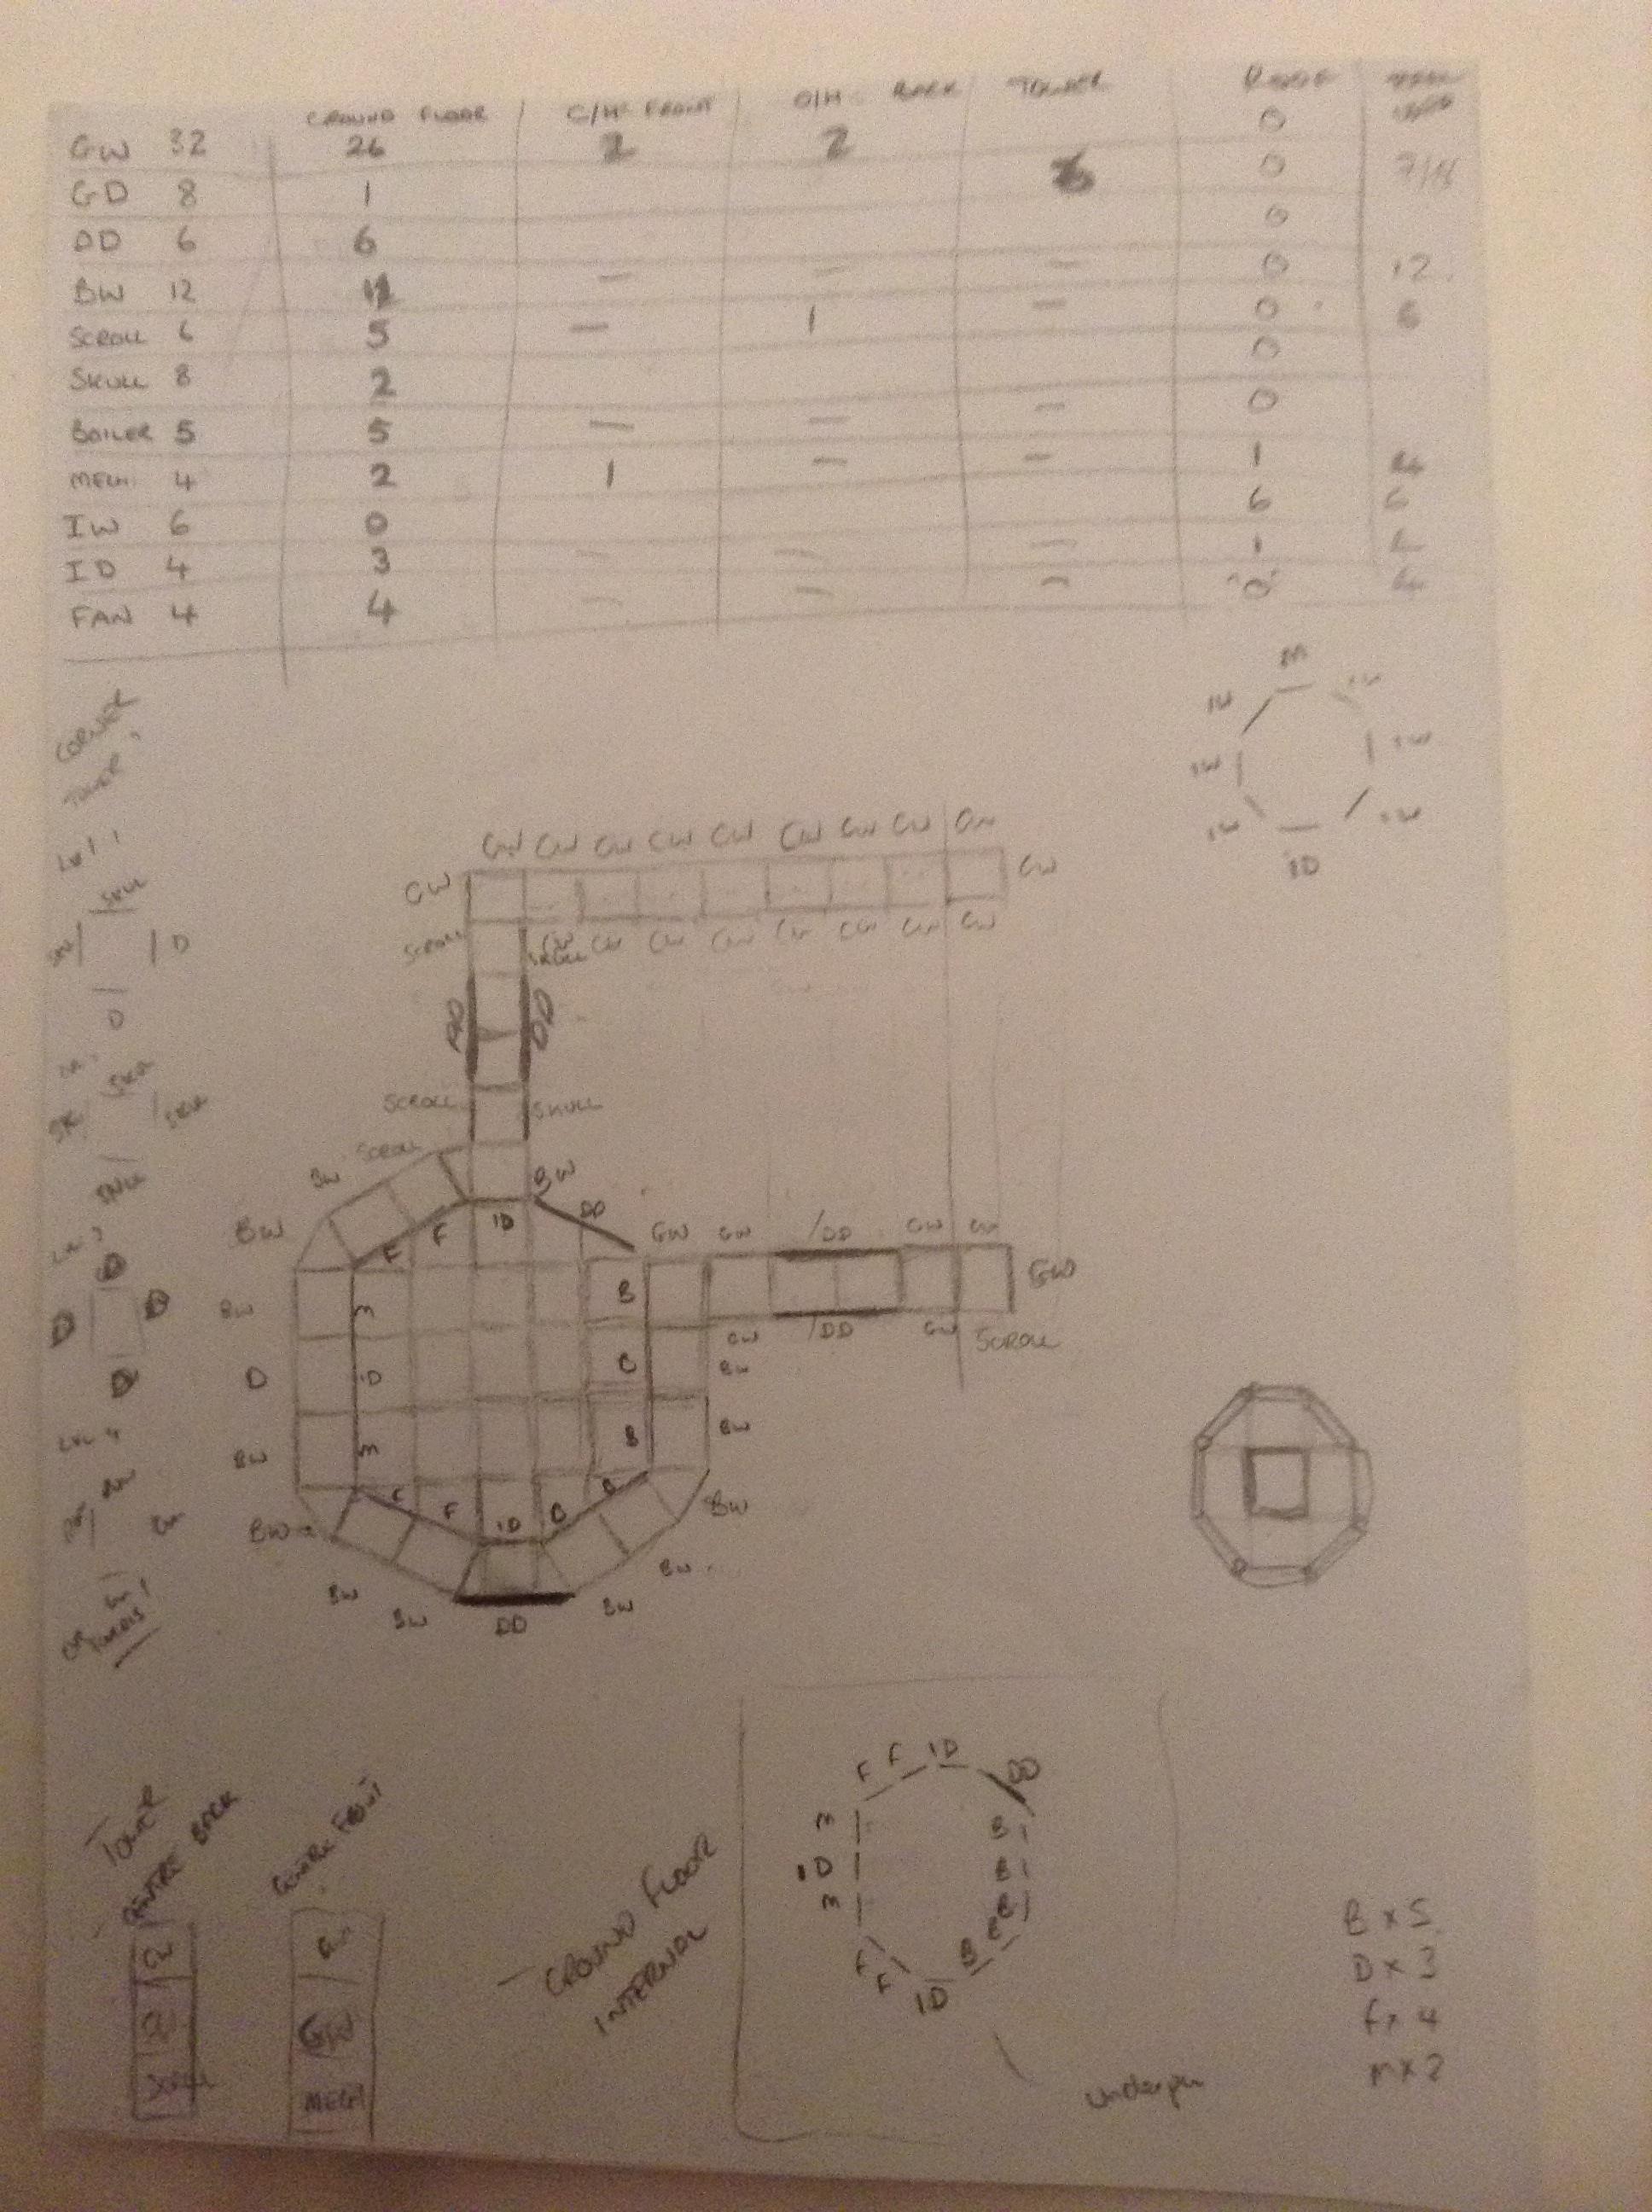 GROUND FLOOR C/H FRONT O/H BACK TOWER ROOF
GW 32 26 2 2 0
GD 8 1 0
DD 6 6 0
BW 12 — — — 0 12
SCROLL 6 5 — 1 — 0 6
SKULL 8 2 0
BOILER 5 5 — — — 0
MECH 4 2 1 — — 1
IW 6 0 6 6
ID 4 3 — — — 1
FAN 4 4 — — — 0
CORNER
TOWER
LVL 1
SKUL
D
D
SKUL
SKUL
D
D
D
D
LVL 4
M
IW
IW IW
IW IW
IW
ID
GW GW GW GW GW GW GW GW GW
GW GW
SCROLL GW SKULL GW GW GW GW GW GW GW
DD DD
SCROLL SKULL
SCROLL
BW BW
BW F F ID DD GW GW DD GW GW
BW M B GW
GW DD GW SCROLL
D ID B BW
BW M B BW
F F ID B B
BW BW
BW BW
BW DD BW
TOWER
CENTRE BACK
GW
CENTRE FRONT
GW
GW
MECH
GROUND FLOOR
INTERNAL
F F ID DD
M B
ID B
M B
F B
F ID B
B x 5
D x 3
F x 4
M x 2